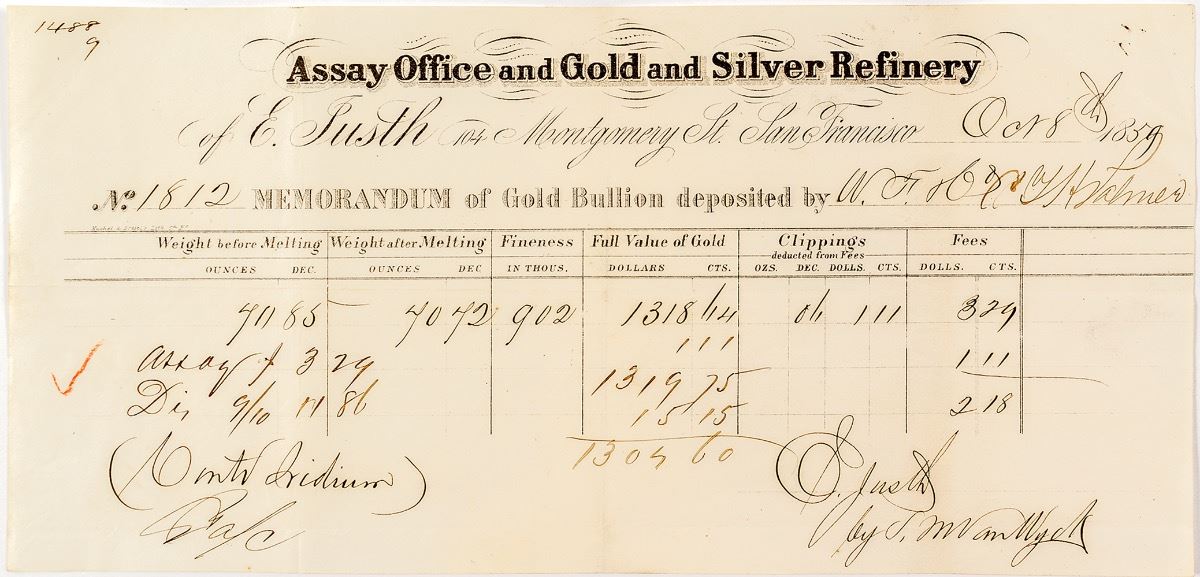 1488
9
Assay Office and Gold and Silver Refinery
of E. Justh 104 Montgomery St. San Francisco Oct 8th 1859
No. 1812 MEMORANDUM of Gold Bullion deposited by W. F. & Co
Weight before Melting Weight after Melting Fineness Full Value of Gold Clippings Fees
deducted from Fees
OUNCES DEC. OUNCES DEC IN THOUS. DOLLARS CTS. OZS. DEC. DOLLS. CTS. DOLLS. CTS.
70 85 70 72 902 1318 64 06 1 11 3 29
1 11 1 11
Assay $ 3 29 1319 75
Dis 9/10 11 86 15 15 2 18
1304 60
(Conts Iridium)
E. Justh
by S. M Van Wyck